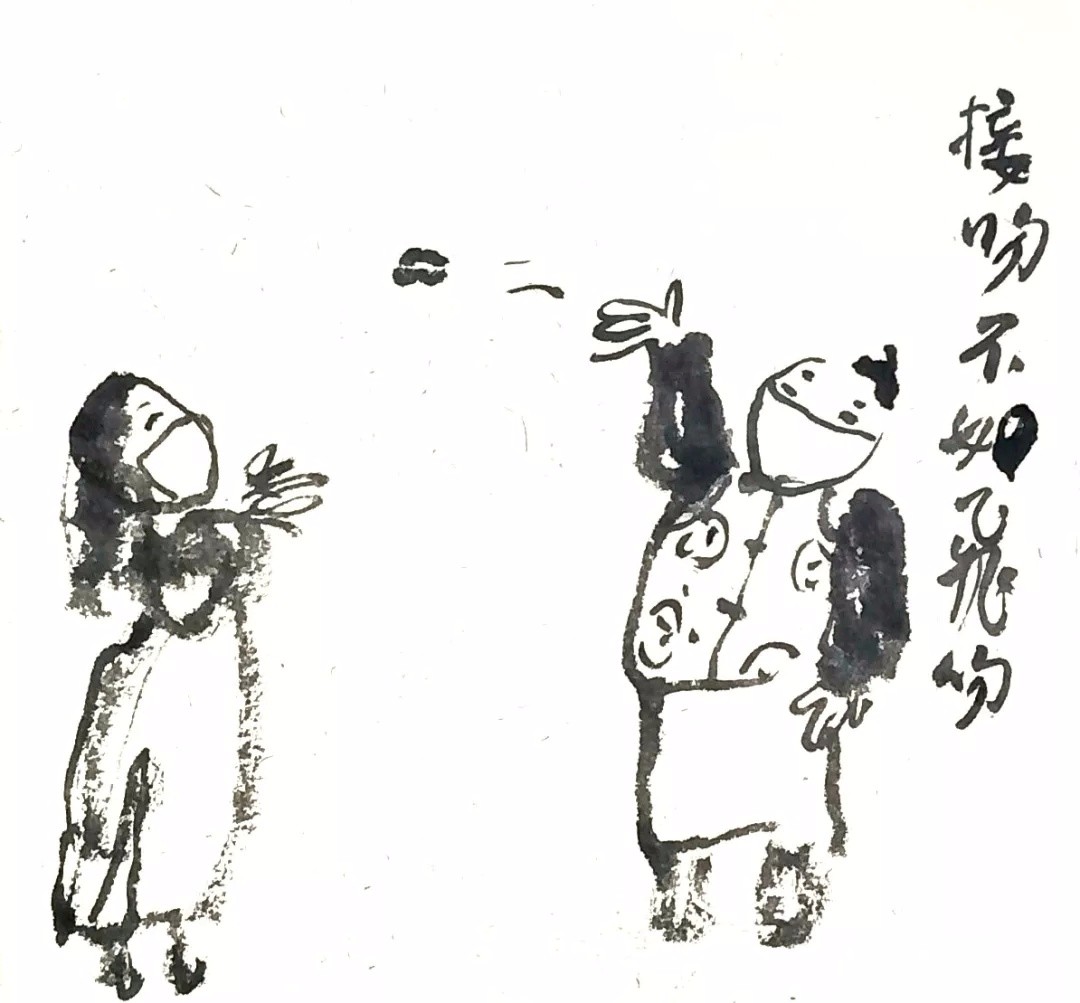 接吻不如飛吻